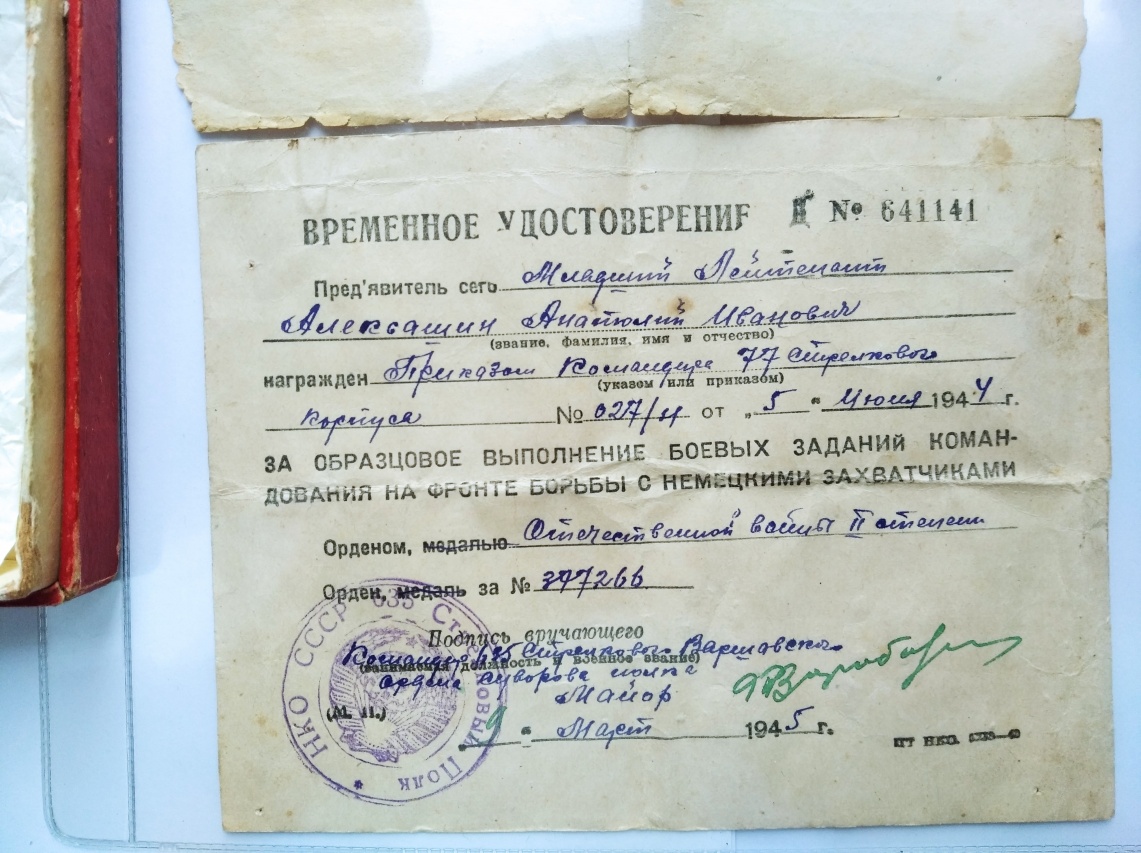 ВРЕМЕННОЕ УДОСТОВЕРЕНИЕ Д № 641141
Пред'явитель сего Младший Лейтенант
Алексашин Анатолий Иванович
(звание, фамилия, имя и отчество)
награжден Приказом Командира 77 Стрелкового
(указом или приказом)
корпуса № 027/н от „5 " Июля 1944 г.
ЗА ОБРАЗЦОВОЕ ВЫПОЛНЕНИЕ БОЕВЫХ ЗАДАНИЙ КОМАН-
ДОВАНИЯ НА ФРОНТЕ БОРЬБЫ С НЕМЕЦКИМИ ЗАХВАТЧИКАМИ
Орденом, медалью Отечественной войны II степени
Орден, медаль за № 347266
Подпись вручающего
Командир 635 Стрелкового Варшавского
(занимаемая должность и военное звание)
ордена Суворова полка
Майор
(М. П.)
„9 " Март 1945 г.
НКО СССР * 635 Стрелковый Полк *